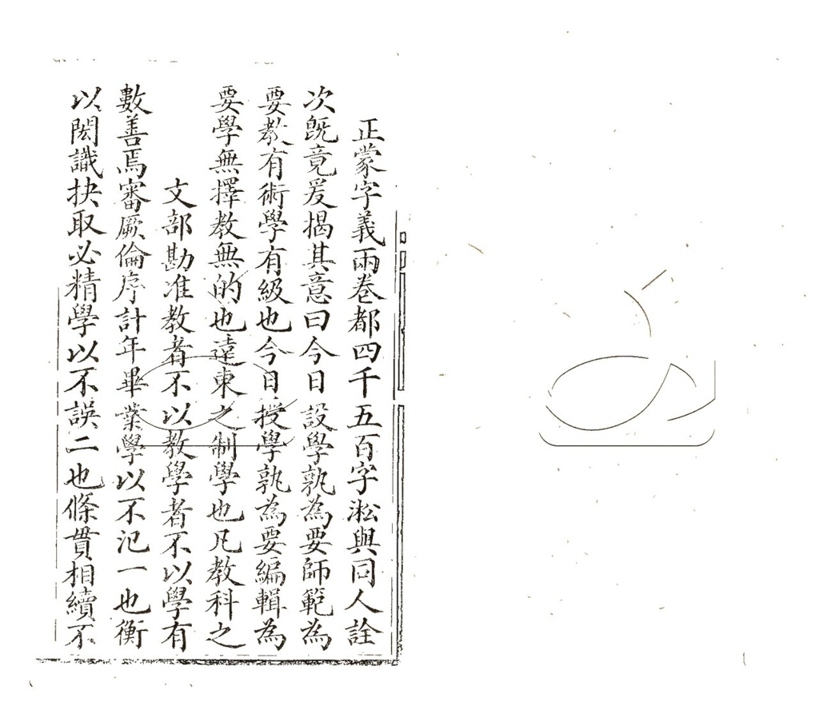 正蒙字義兩卷都四千五百字淞與同人詮
次既竟爰揭其意曰今日設學孰為要師範為
要教有術學有級也今日授學孰為要編輯為
要學無擇教無的也遠東之制學也凡教科之
文部勘准教者不以教學者不以學有
數善焉審厥倫序計年畢業學以不氾一也衡
以閎識抉取必精學以不誤二也條貫相續不